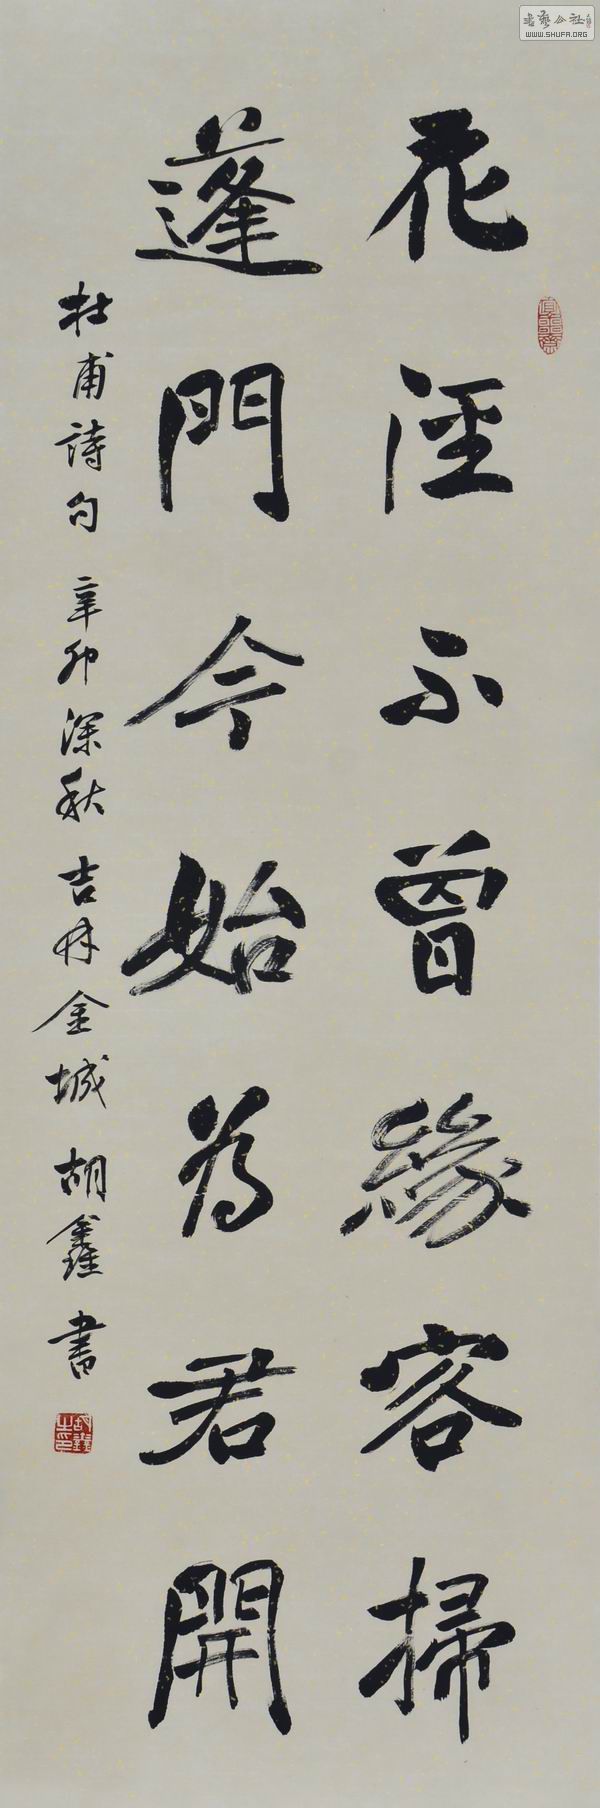 花涇不曾緣客掃
蓬門今始為君開
杜甫詩句 辛卯深秋 吉林金城 胡鑫書
胡鑫之印
WWW.SHUFA.ORG